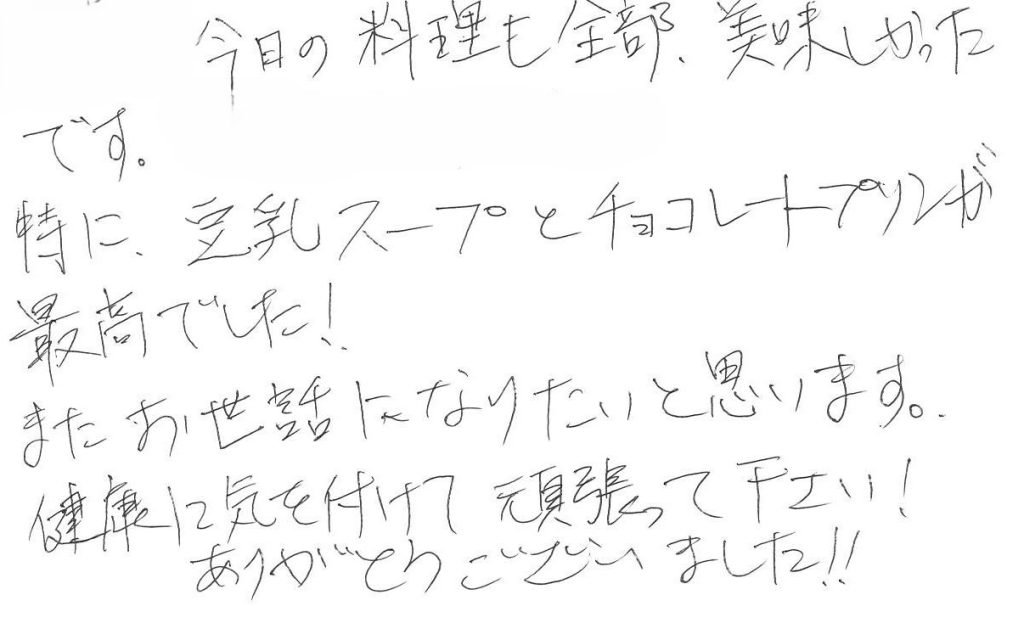 今日の料理も全部、美味しかった
です。
特に、豆乳スープとチョコレートプリンが
最高でした!
またお世話になりたいと思います。
健康に気を付けて頑張って下さい!
ありがとうございました!!